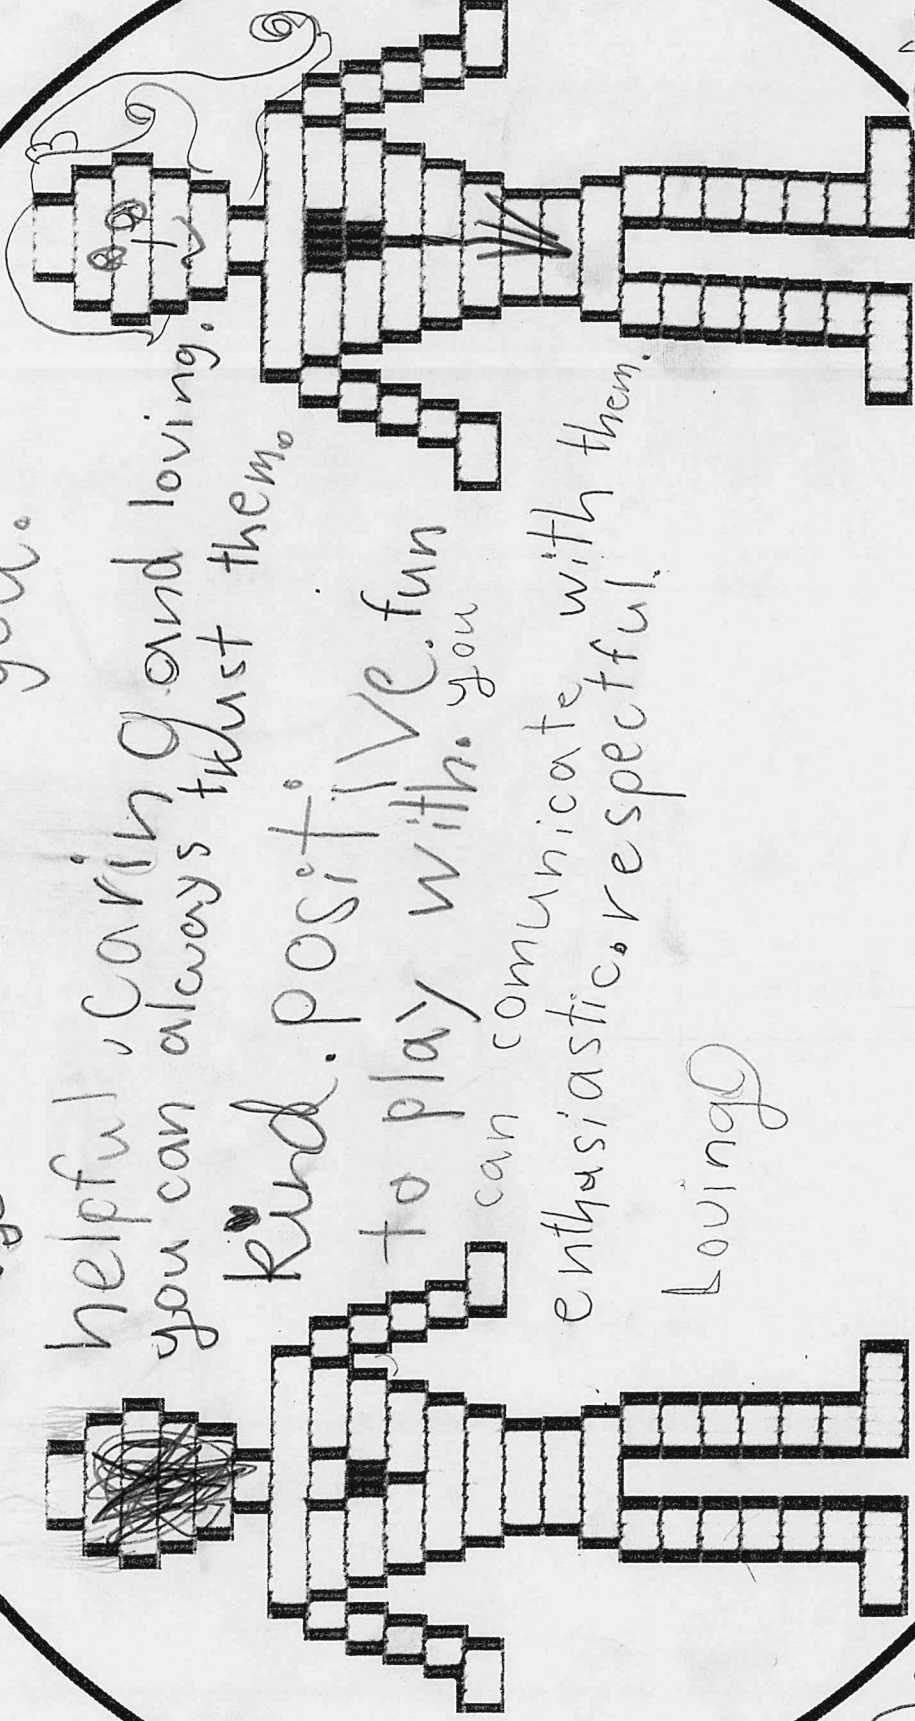 you.
helpful, caring and loving.
you can always trust them.
kind. positive. fun
to play with. you
can comunicate with them.
enthusiastic. respectful.
Loving